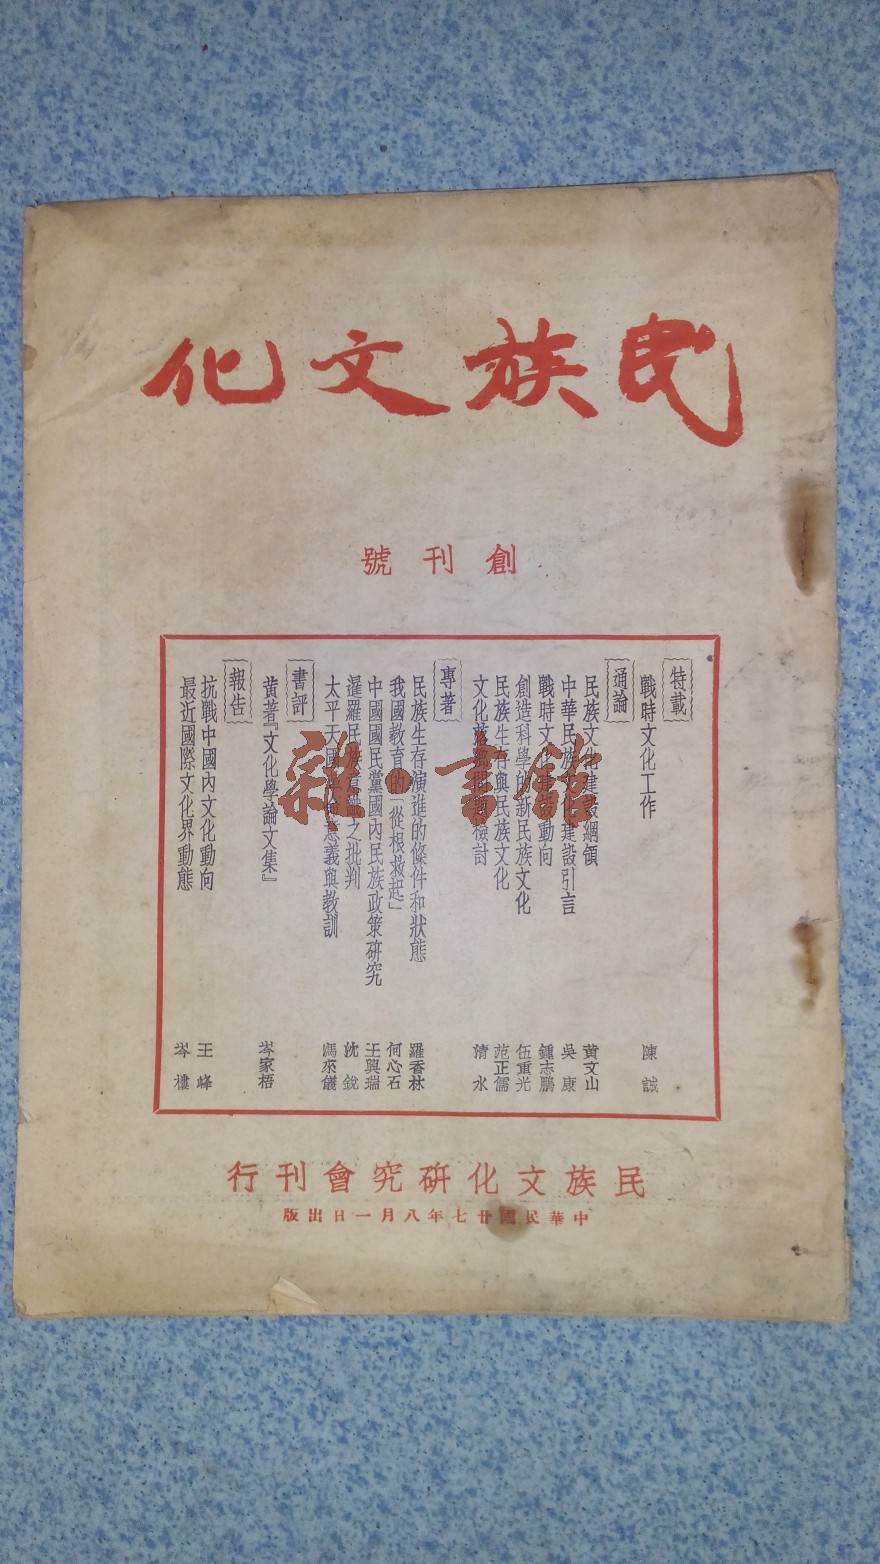 民族文化
創刊號
特載
戰時文化工作 陳誠
通論
民族文化建設綱領 黄文山
中華民族文化建設引言 吳康
戰時文化動向 鍾志鵬
創造科學的新民族文化 伍重光
民族生存與民族文化 范正儒
文化檢討 清水
專著
民族生存演進的條件和狀態 羅香林
我國教育的「從根救起」 何心石
中國國民黨國內民族政策研究 王興瑞
暹羅民族意識之批判 沈銳
太平天國革命意義與教訓 馮來儀
書評
黄著『文化學論文集』 岑家梧
報告
抗戰中國內文化動向 王峰
最近國際文化界動態 岑樓
雜·書館
民族文化研究會刊行
中華民國廿七年八月一日出版